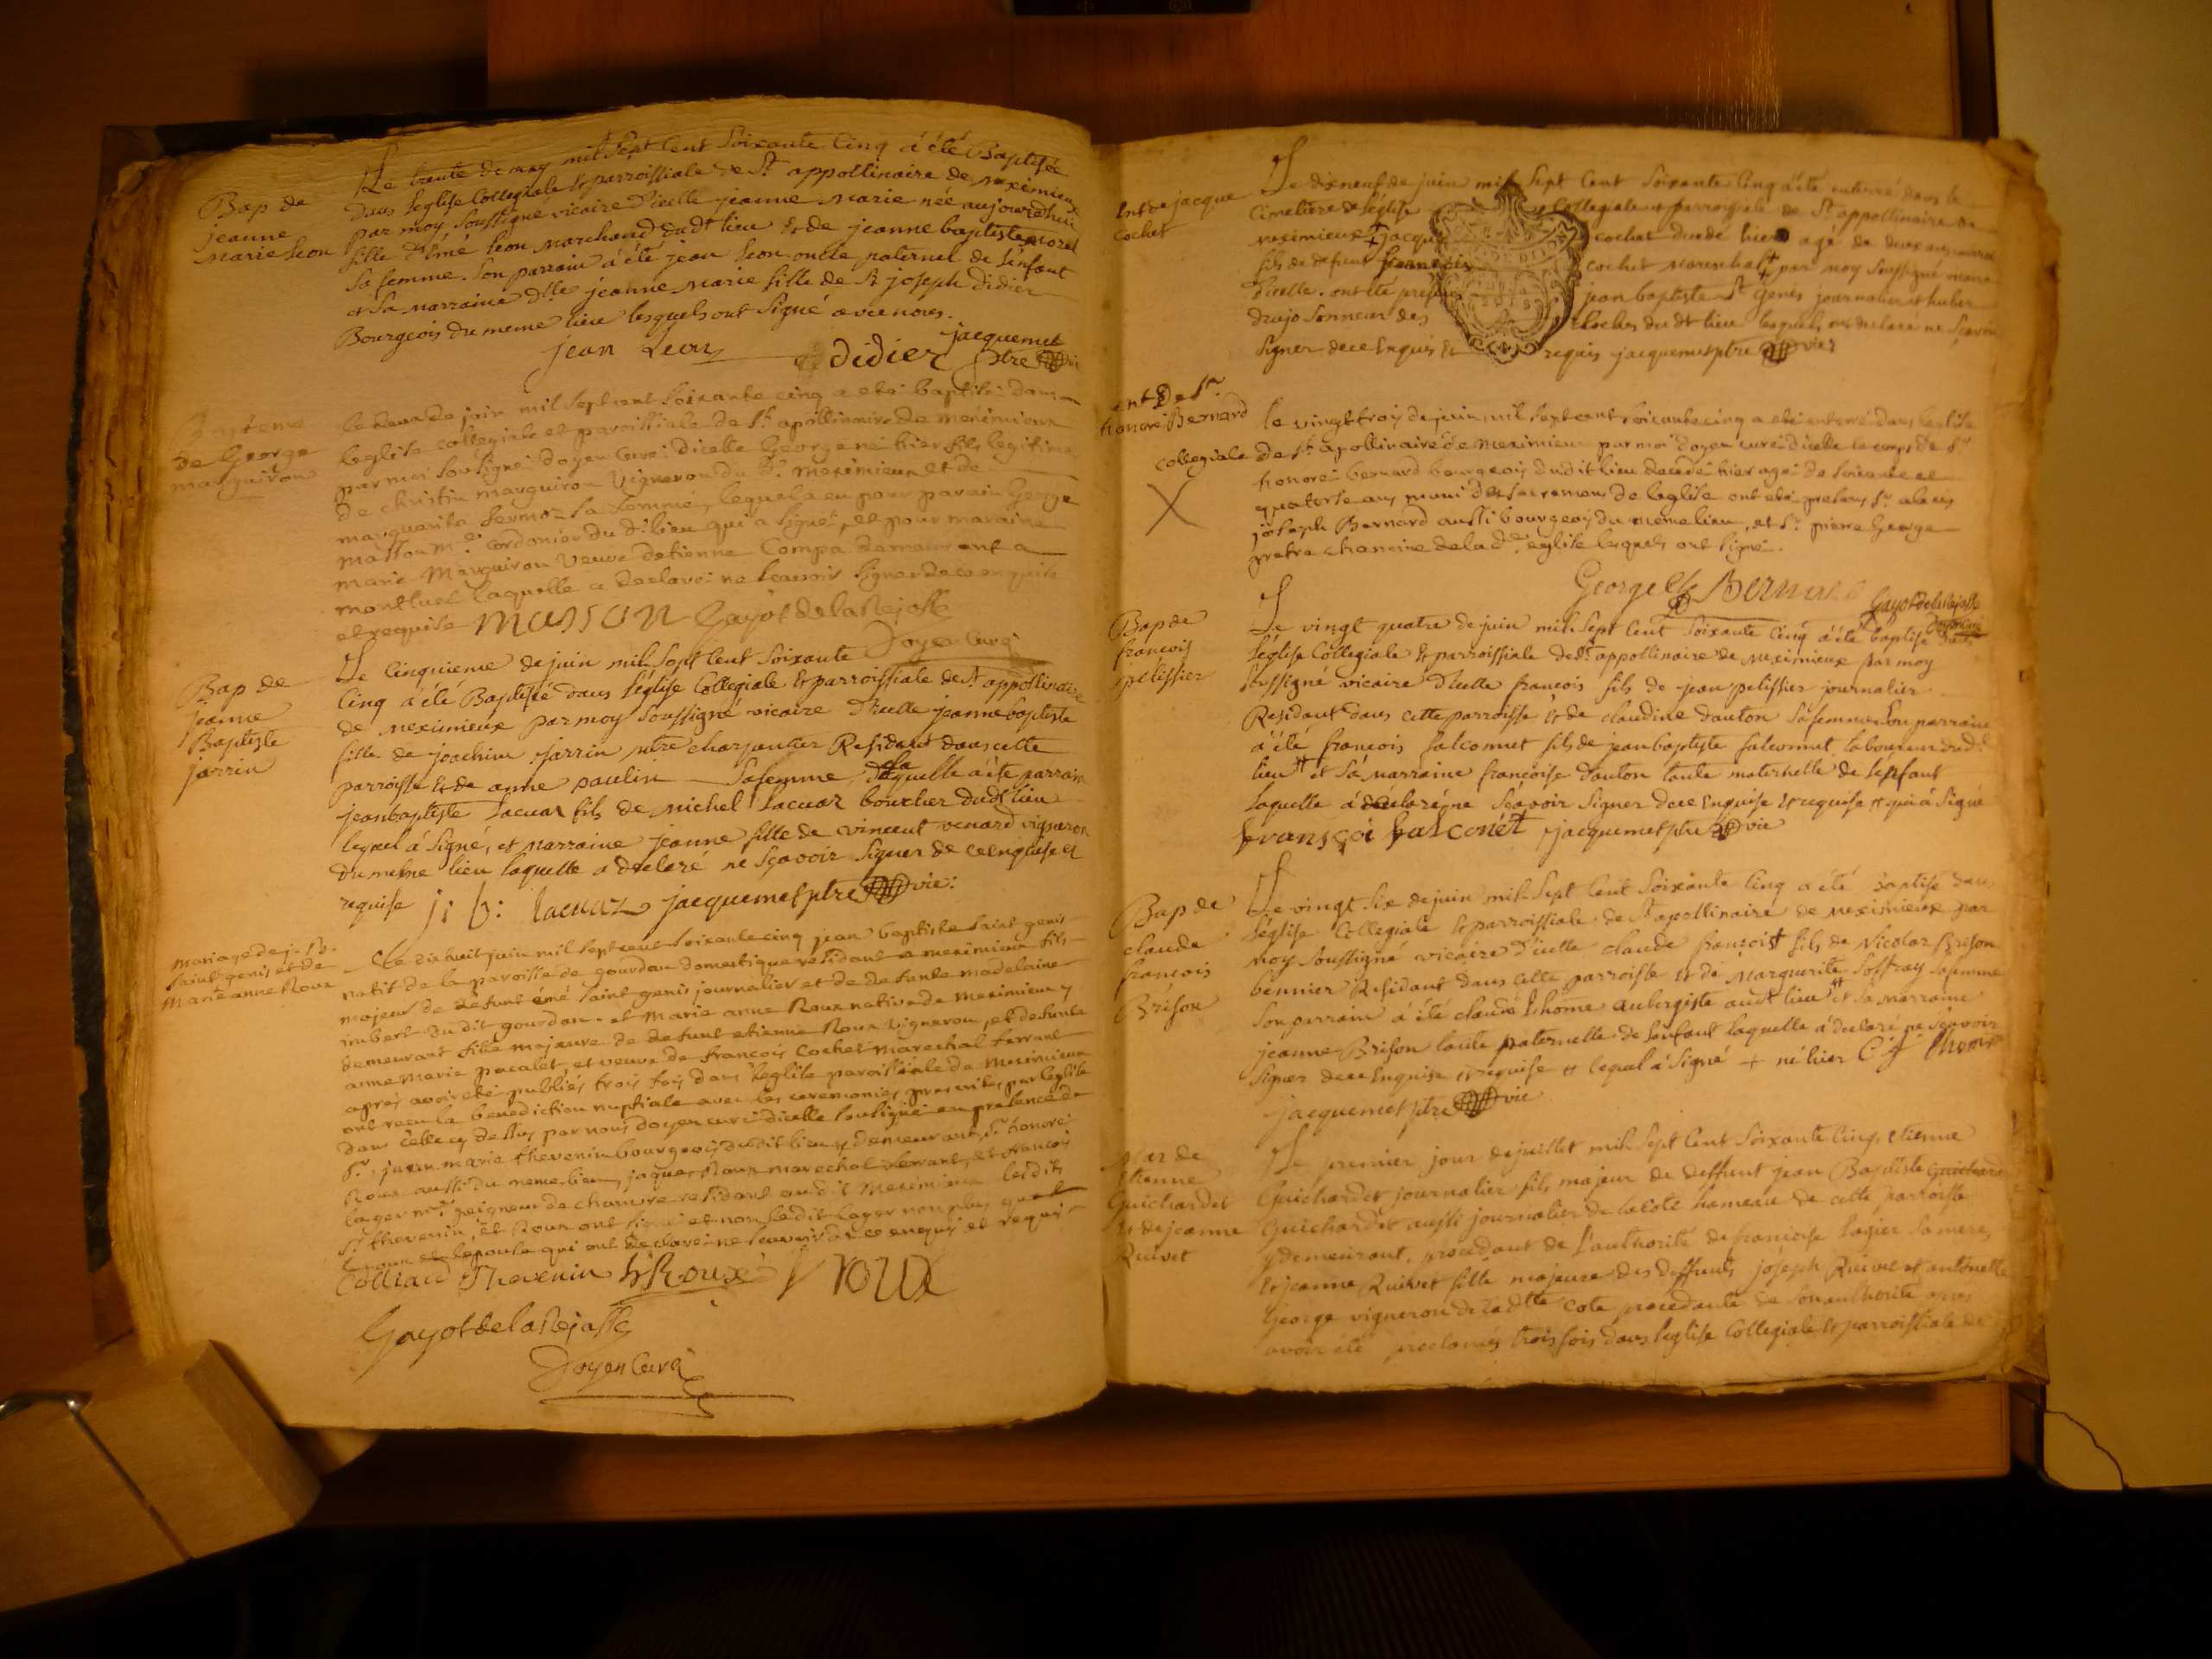 Bap de
jeanne
Marie Leon
Le trente de may mil Sept Cent Soixante Cinq á été Baptisée
dans L'eglise Collegiale & parroissiale de St appollinaire de Meximieux
par moy soussigné vicaire D'icelle jeanne Marie née aujourd'huy
fille d'Emé Leon Marchand dudt lieu & de jeanne baptiste morel
Sa femme. Son parrain á été jean Leon oncle paternel de L'enfant
et Sa Marraine Dlle jeanne Marie fille de Sr joseph Didier
Bourgeois du meme lieu lesquels ont Signé avec nous.
jean Leon didier jacquemet
ptre vic
Bapteme
de George
marguiron
le deux de juin mil sept cent soixante cinq a eté baptisé dans
leglise collegiale et paroissiale de St apollinaire de meximieux
par moi soussigné doyen curé dicelle George né hier fils legitime
de christin marguiron vigneron du dt meximieux et de
marguerite fermoz sa femme, lequel a eu pour parain George
masson me cordonier du dt lieu qui a signé, et pour maraine
marie Marguiron veuve detienne Compa demeurant a
montluel laquelle a declaré ne scavoir signer de ce enquise
et requise masson Gayot de la Rejasse
Doyen Curé
Bap de
jeanne
Baptiste
jarrin
Le cinquieme de juin mil Sept Cent Soixante
Cinq á été Baptisée dans L'eglise Collegiale & parroissiale de St appollinaire
de Meximieux par moy soussigné vicaire D'icelle jeanne baptiste
fille de joachim jarrin mtre charpentier Residant dans cette
parroisse & de anne paulin Sa femme, De laquelle á été parrain
jean baptiste Lacuaz fils de Michel Lacuaz boucher dudt lieu
lequel á Signé, et Marraine jeanne fille de vincent venard vigneron
du meme lieu laquelle a declaré ne sçavoir Signer de ce enquise et
requise j: b: Lacuaz jacquemet ptre vic:
Mariage de j. B.
Saint genis et de
Marie anne Roux
Le dix huit juin mil sept cent soixante cinq jean baptiste saint genis
natif de la paroisse de gourdan domestique residant a meximieux fils
majeur de defunt émé saint genis journalier et de defunte madelaine
imbert du dit gourdan. et Marie anne Roux native de Meximieux y
demeurant fille majeure de defunt etienne Roux vigneron, et defunte
anne Marie pacalet, et veuve de françois Cochet marechal ferrant
après avoir eté publiés trois fois dans leglise paroissiale de Meximieux
ont reçu la benediction nuptiale avec les ceremonies prescrites par leglise
dans celle cy dessus par nous doyen curé dicelle soussigné en presence de
Sr jean marie thevenin bourgeois du dit lieu y demeurant, Sr honoré
Roux aussi du meme lieu, jaques Roux marechal ferrant, et françois
lager me peigneur de chanvre residant au dit Meximieux les dits
Sr thevenin, et Roux ont signé et non ledit lager non plus que
lepoux et lepouse qui ont declaré ne scavoir de ce enquis et requis
Colliard Thevenin h Roux j roux
Gayot de la Rejasse
Doyen Curé
Ent de jacque
Cochet
Le dixneuf de juin mil Sept Cent Soixante Cinq á été enterré dans le
Cimetiere de L'eglise Collegiale & parroissiale de St appollinaire de
meximieux jacque cochet decedé hier agé de deux ans
fils de defunt françois cochet mareschal par moy soussigné vicaire
D'icelle. ont été presents jean baptiste St genis journalier et huber
drujo Sonneur des Cloches du dt lieu lesquels ont declaré ne Sçavoir
Signer de ce Enquis & requis jacquemet ptre vic:
ent de Sr
honoré Bernard
le vingt trois de juin, mil sept cent soixante cinq a eté enterré dans leglise
collegiale de St apollinaire de Meximieux par moi doyen curé dicelle le corps de Sr
honoré bernard bourgeois du dit lieu decedé hier agé de soixante et
quatorse ans muni des sacremens de leglise ont eté presens Sr alexis
joseph Bernard aussi bourgeois du meme lieu, et Sr pierre George
pretre chanoine de lade eglise lesquels ont signé.
George Bernard Gayot de la Rejasse
doyen curé
Bap de
francois
pelissier
Le vingt quatre de juin mil Sept Cent Soixante Cinq á été baptisé dans
L'église Collegiale & parroissiale de St appollinaire de Meximieux par moy
Soussigné vicaire D'icelle françois fils de jean pelissier journalier
Residant dans cette parroisse & de claudine dauton Sa femme Son parrain
á été françois falconnet fils de jean baptiste falconnet laboureur dudt
lieu # et Sa Marraine françoise dauton tante maternelle de L'enfant
laquelle á declaré ne Sçavoir Signer de ce Enquise & requise # qui á Signé
fransçoi falconét jacquemet ptre vic
Bap de
claude
françois
Brison
Le vingt Six de juin mil Sept Cent Soixante Cinq á été Baptisé dans
L'église Collegiale & parroissiale de St apollinaire de Meximieux par
Moy Soussigné vicaire D'icelle claude françois + fils de Nicolas Brison
bennier Residant dans cette parroisse & de Marguerite Soffray Sa femme
Son parrain á été claude L'home aubergiste audt lieu # et Sa Marraine
jeanne Brison tante paternelle de L'enfant laquelle á declaré ne Sçavoir
Signer de ce Enquise & requise # lequel á Signé + né hier C Lhome
jacquemet ptre vic
Mar de
Etienne
Guichardet
& de jeanne
Quivet
Le premier jour de juillet mil Sept Cent Soixante Cinq, Etienne
Guichardet journalier fils majeur de deffunt jean Baptiste
Guichardet aussi journalier de la Cote hameau de cette parroisse
y demeurant, procedant de L'authorité de françoise Lagier Sa mere,
& jeanne Quivet fille majeure des deffunts joseph Quivet et antoinette
George vigneron de ladtte Cote procedante de Son authorité apres
avoir été proclamés trois fois dans L'eglise Collegiale & parroissiale de